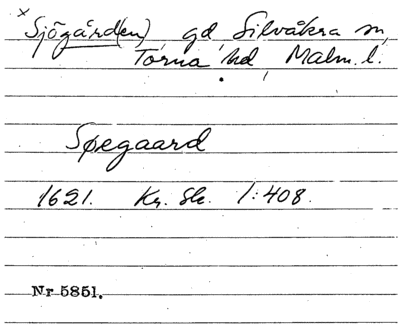 x Sjögård(en), gd, Silvåkra sn,
Torna hd, Malm. l.
Søegaard
1621. Kr. Sk. 1:408.
Nr 5851.